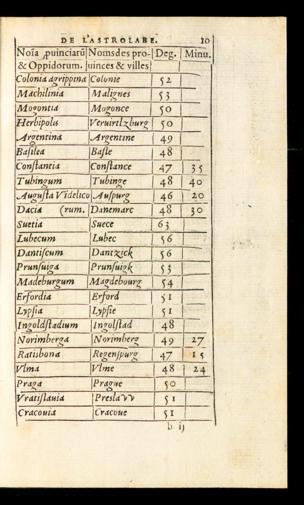 DE L'ASTROLABE. 10
Noĩa ,puinciarũ Noms des pro- Deg. Minu.
& Oppidorum. uinces & villes
Colonia agrippina Colonie 52
Machilinia Malignes 53
Mogontia Mogonce 50
Herbipolis Veruirtlzburg 50
Argentina Argentine 49
Basilea Basle 48
Constantia Constance 47 35
Tubingum Tubinge 48 40
Augusta Videlico Auspurg 46 20
Dacia (rum. Danemarc 48 30
Suetia Suece 63
Lubecum Lubec 56
Dantiscum Dantzick 56
Prunsuiga Prunsuigk 53
Madeburgum Magdebourg 54
Erfordia Erford 51
Lypsia Lypsie 51
Ingoldstadium Ingolstad 48
Norimberga Norimberg 49 27
Ratisbona Regenspurg 47 15
Vlma Vlme 48 24
Praga Prague 50
Vratislauia Preslavv 51
Cracouia Cracoue 51
b ij